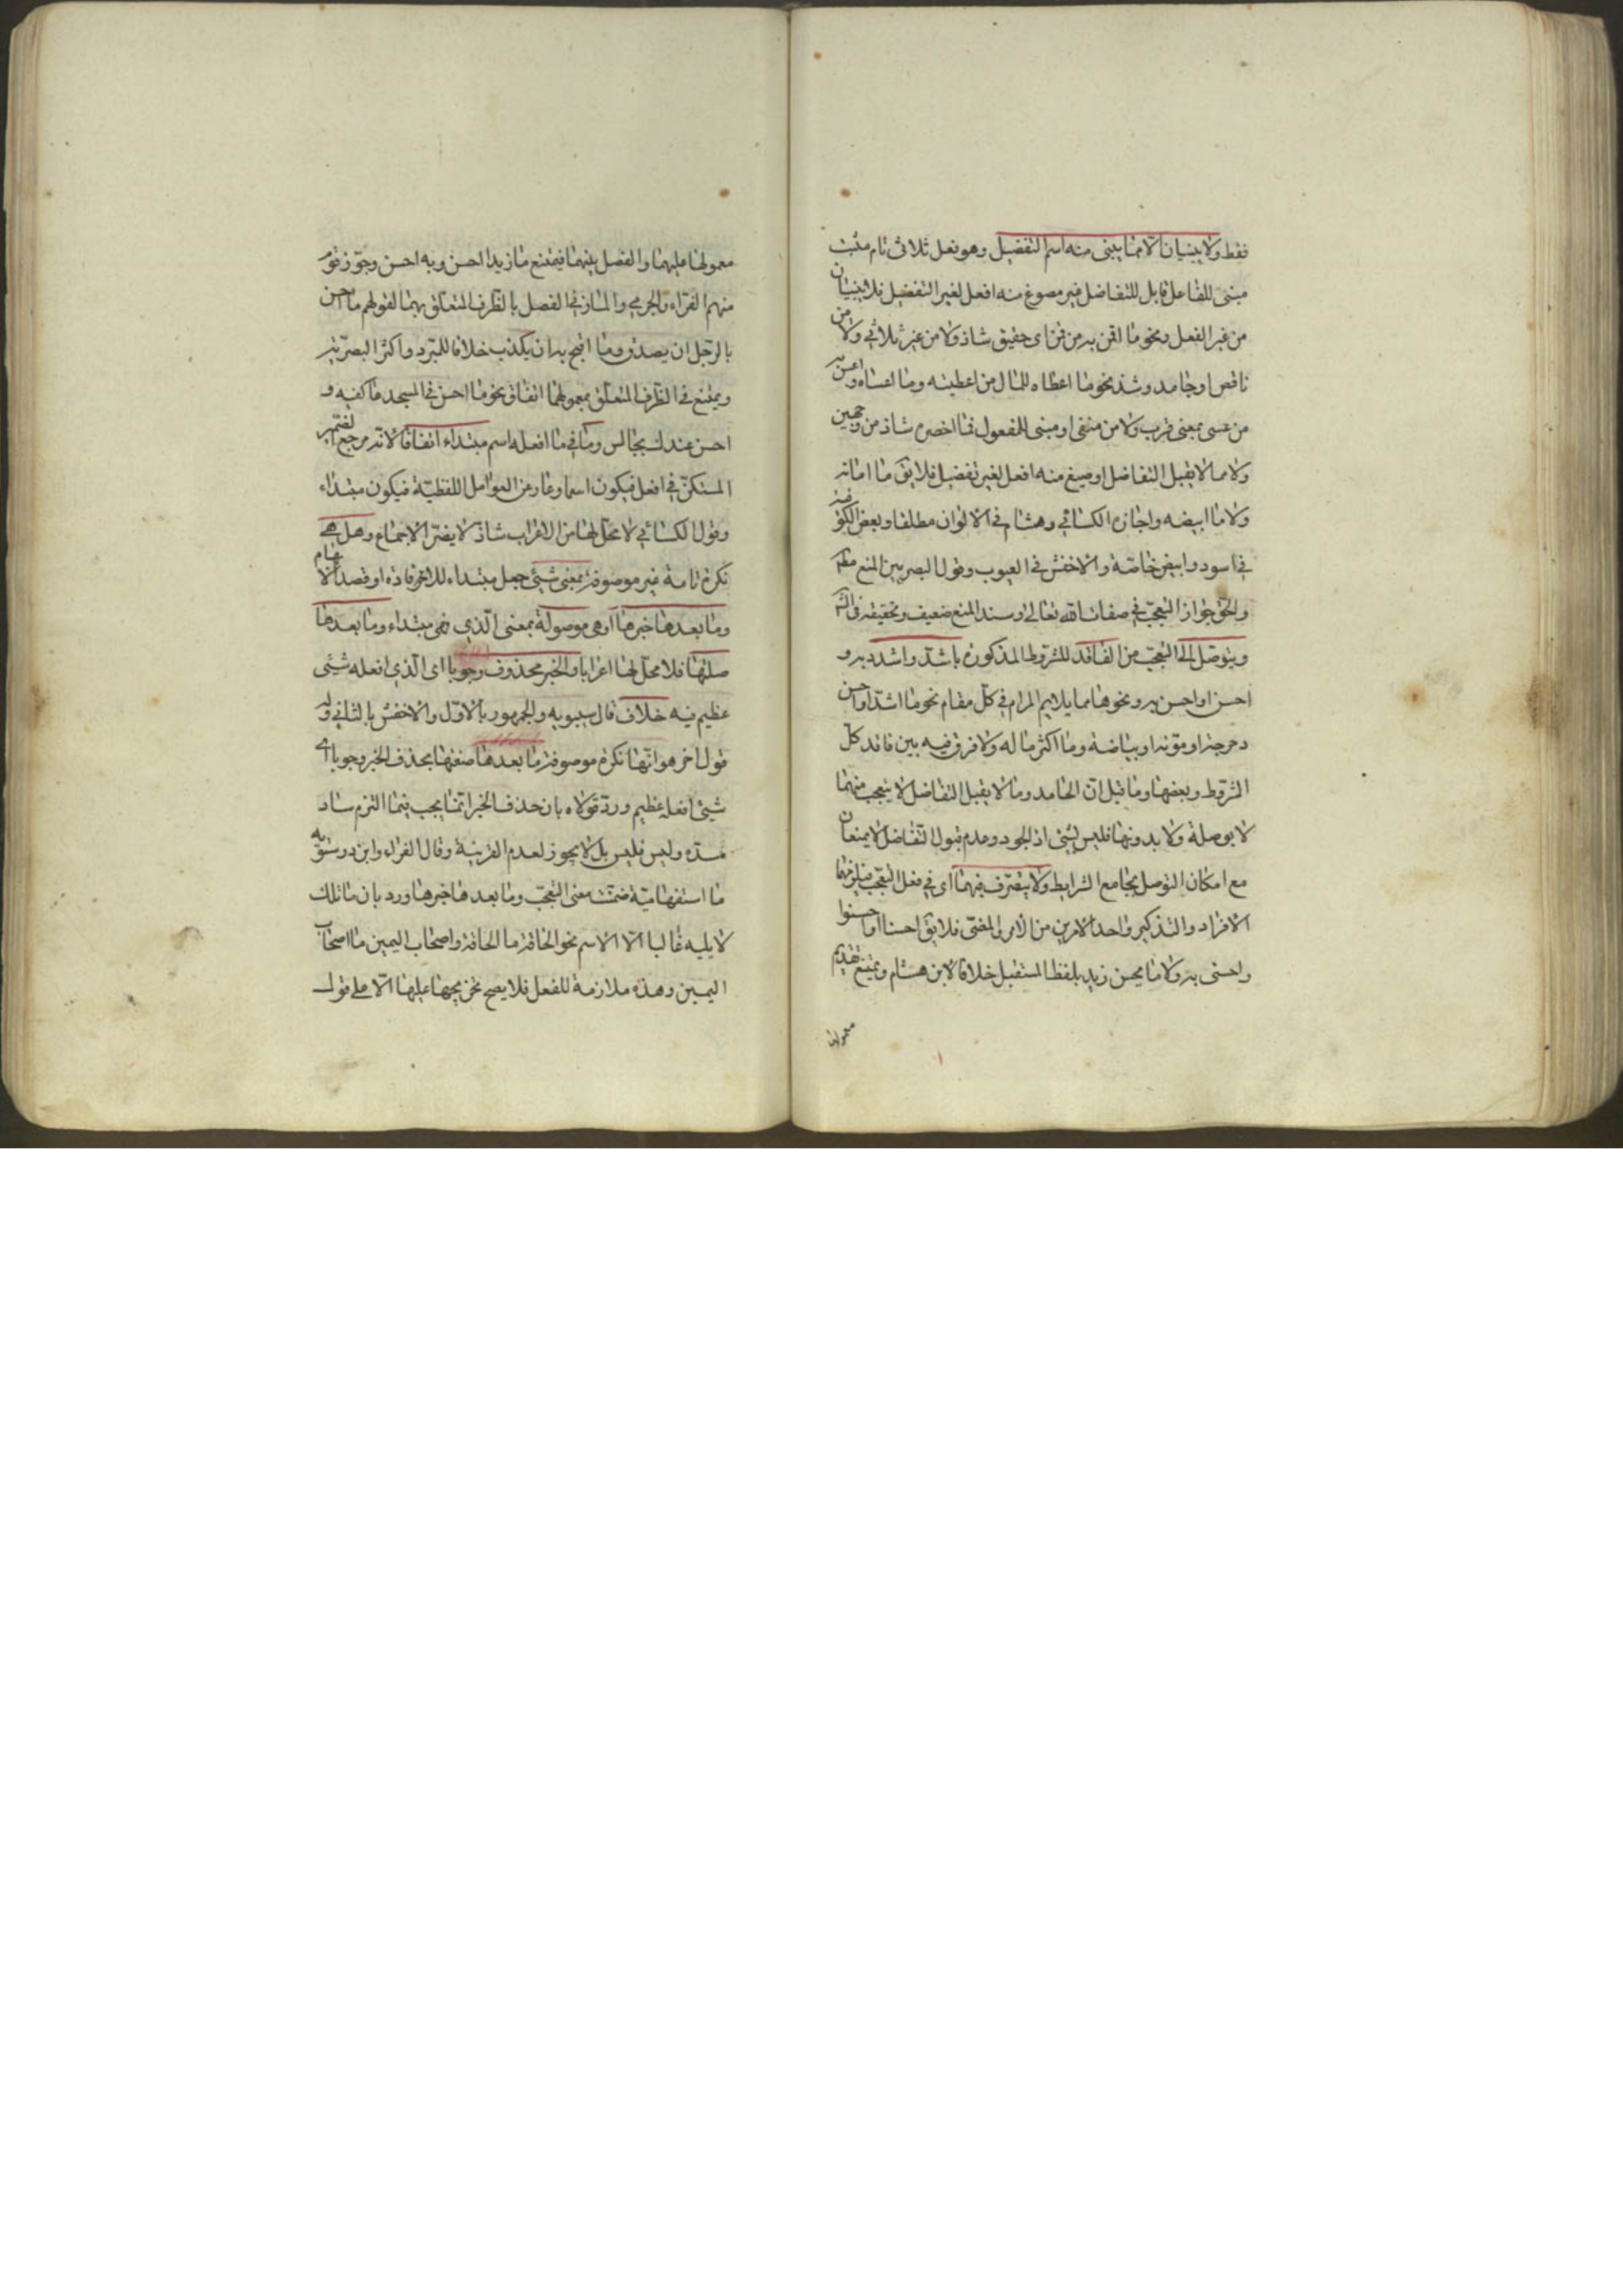 فقط ولا يبنيان الا مما يبنى منه اسم التفضيل وهو فعل ثلاثى تام مثبت
مبنى للفاعل قابل للتفاضل غير مصوغ منه افعل لغير التفضيل فلا يبنيان
من غير الفعل ونحو ما اقمن به من قمن اى حقيق شاذ ولا من غير ثلاثي ولا من
ناقص او جامد وشذ نحو ما اعطاه للمال من اعطيته وما اعساه واعس به
من عسى بمعنى قرب ولا من منفى او مبنى للمفعول فما اخصره شاذ من وجهين
ولا مما لا يقبل التفاضل او صيغ منه افعل لغير تفضيل فلا يق ما اماته
ولا ما ابيضه واجازه الكسائي وهشام في الالوان مطلقا وبعض الكوفية
في اسود وابيض خاصة والاخفش في العيوب وقول البصريين المنع مطم
والحق جواز التعجب في صفات الله تعالى وسند المنع ضعيف وتحقيقه فى الشرح
ويتوصل الى التعجب من الفاقد للشروط المذكوره باشد واشدد به و
احسن او احسن به ونحوها مما يلايم المرام في كل مقام نحو ما اشد او احسن
دحرجته او موته او بياضه وما اكثر ما له ولا فرق فيه بين فاقد كل
الشروط وبعضها وما قيل ان الجامد وما لا يقبل التفاضل لا يتعجب منهما
لا بوصلة ولا بدونها فليس بشئ اذ الجمود وعدم قبول التفاضل لا يمنعان
مع امكان التوصل بجامع الشرايط ولا يتصرف فيهما اى في فعل التعجب فيلزمهما
الافراد والتذكير واحد الامرين من الامر او المضى فلا يق احسنا او احسنوا
واحسنى به ولا ما يحسن زيد بلفظ المستقبل خلافا لابن هشام ويمتنع تقديم
معمولها
معمولها عليهما والفصل بينهما فيمتنع ما زيدا احسن وبه احسن وجوز قوم
منهم الفراء والجرمي والمازني الفصل بالظرف المتعلق بهما لقولهم ما احسن
بالرجل ان يصدق وما اقبح به ان يكذب خلافا للمبرد واكثر البصريين
ويمتنع في الظرف المتعلق بمعمولهما اتفاق نحو ما احسن في المسجد معتكفيه و
احسن عندك بجالس وما في ما افعله اسم مبتداء اتفاقا لانه مرجع الضمير
المستكن في افعل فيكون اسما وعار عن العوامل اللفظية فيكون مبتداء
وقول الكسائي لا محل لها من الاعراب شاذ لا يضر الاجماع وهل هي
نكرة تامة غير موصوفة بمعنى شيئ جعل مبتداء للافادة او قصد الابهام
وما بعدها خبرها او هى موصولة بمعنى الذي فهى مبتداء وما بعدها
صلتها فلا محل لها اعرابا والخبر محذوف وجوبا اى الذي افعله شيئى
عظيم فيه خلاف قال سيبويه والجمهور بالاول والاخفش بالثانى وله
قول اخر هو انها نكرة موصوفة ما بعدها صفتها بحذف الخبر وجوبا اى
شيئ افعله عظيم ورد قولاه بان حذف الخبر انما يجب فيما التزم ساد
مسده وليس فليس بل لا يجوز لعدم القرينة وقال الفراء وابن درستويه
ما استفهامية ضمنت معنى التعجب وما بعدها خبرها ورد بان ما تلك
لا يليه غالبا الا الاسم نحو الحاقة ما الحاقة واصحاب اليمين ما اصحاب
اليمين وهذه ملازمة للفعل فلا يصح تخريجها عليها الا على قول